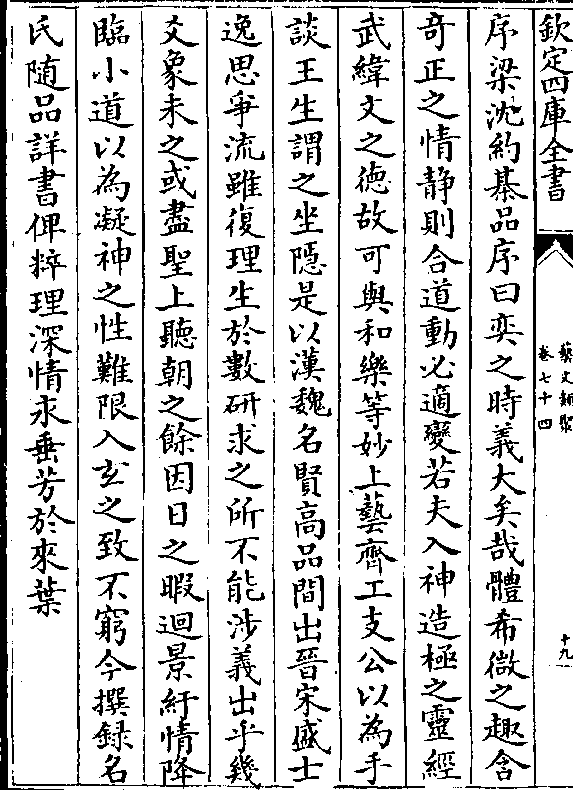 欽定四庫全書
藝文類聚
卷七十四
十九
序梁沈約棊品序曰奕之時義大矣哉體希微之趣含
奇正之情静則合道動必適變若夫入神造極之靈經
武緯文之徳故可與和樂等妙上藝齊工支公以為手
談王生謂之坐隠是以漢魏名賢高品間出晉宋盛士
逸思爭流雖復理生於數研求之所不能涉義出乎幾
爻象未之或盡聖上聽朝之餘因日之暇迴景紆情降
臨小道以為凝神之性難限入玄之致不窮今撰録名
氏隨品詳書俾粹理深情永垂芳於來葉